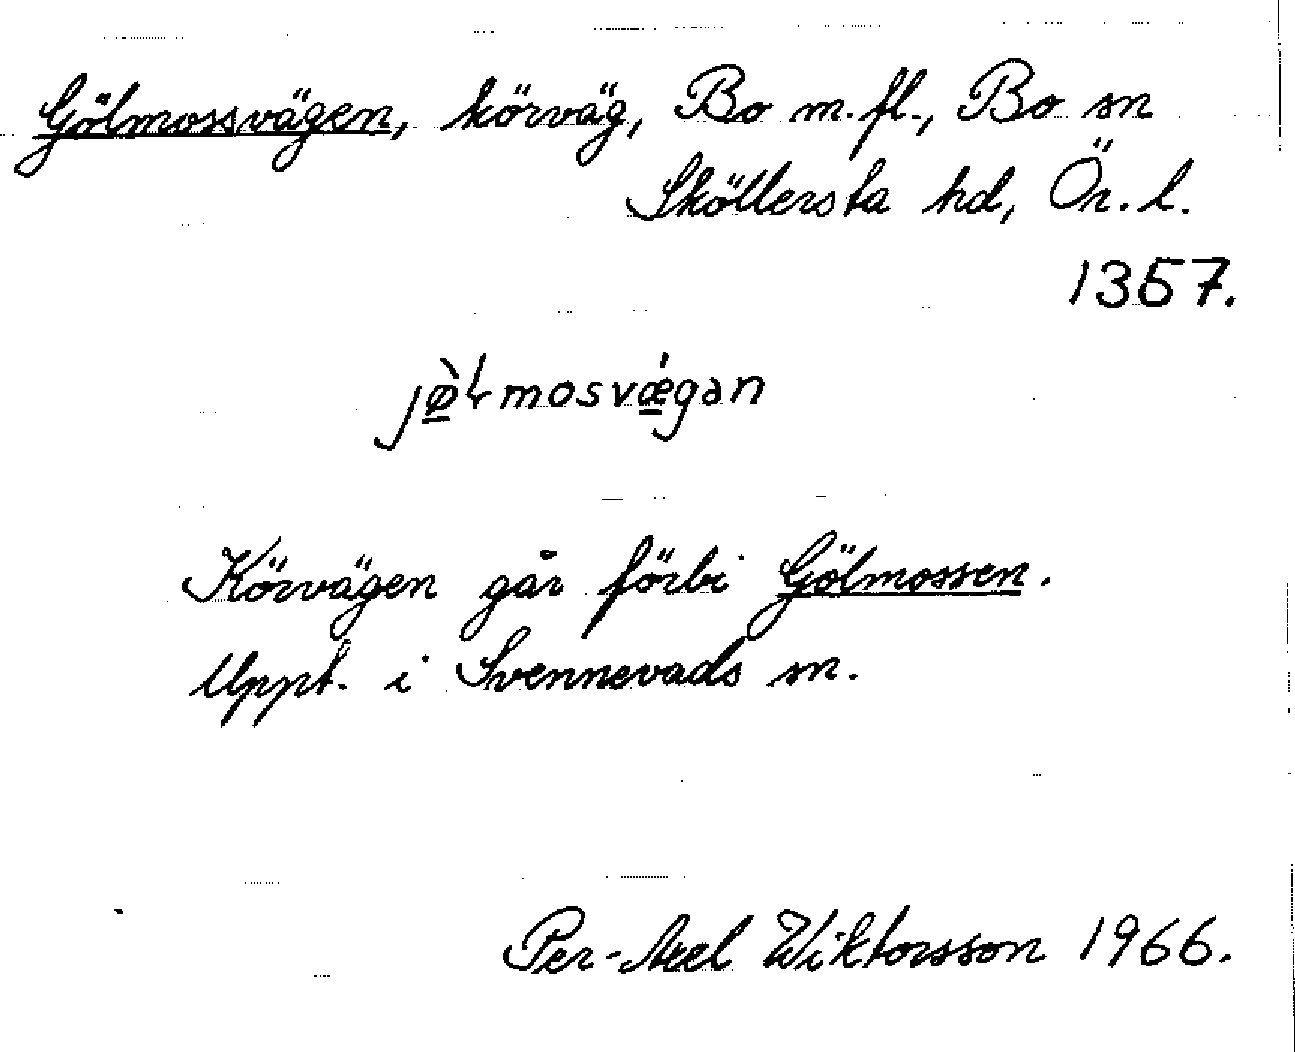 Gölmossvägen, körväg, Bo m.fl., Bo sn
Sköllersta hd, Ör. l.
1357.
jø̀lmosvǽgən
Körvägen går förbi Gölmossen.
Uppt. i Svennevads sn.
Per-Axel Wiktorsson 1966.